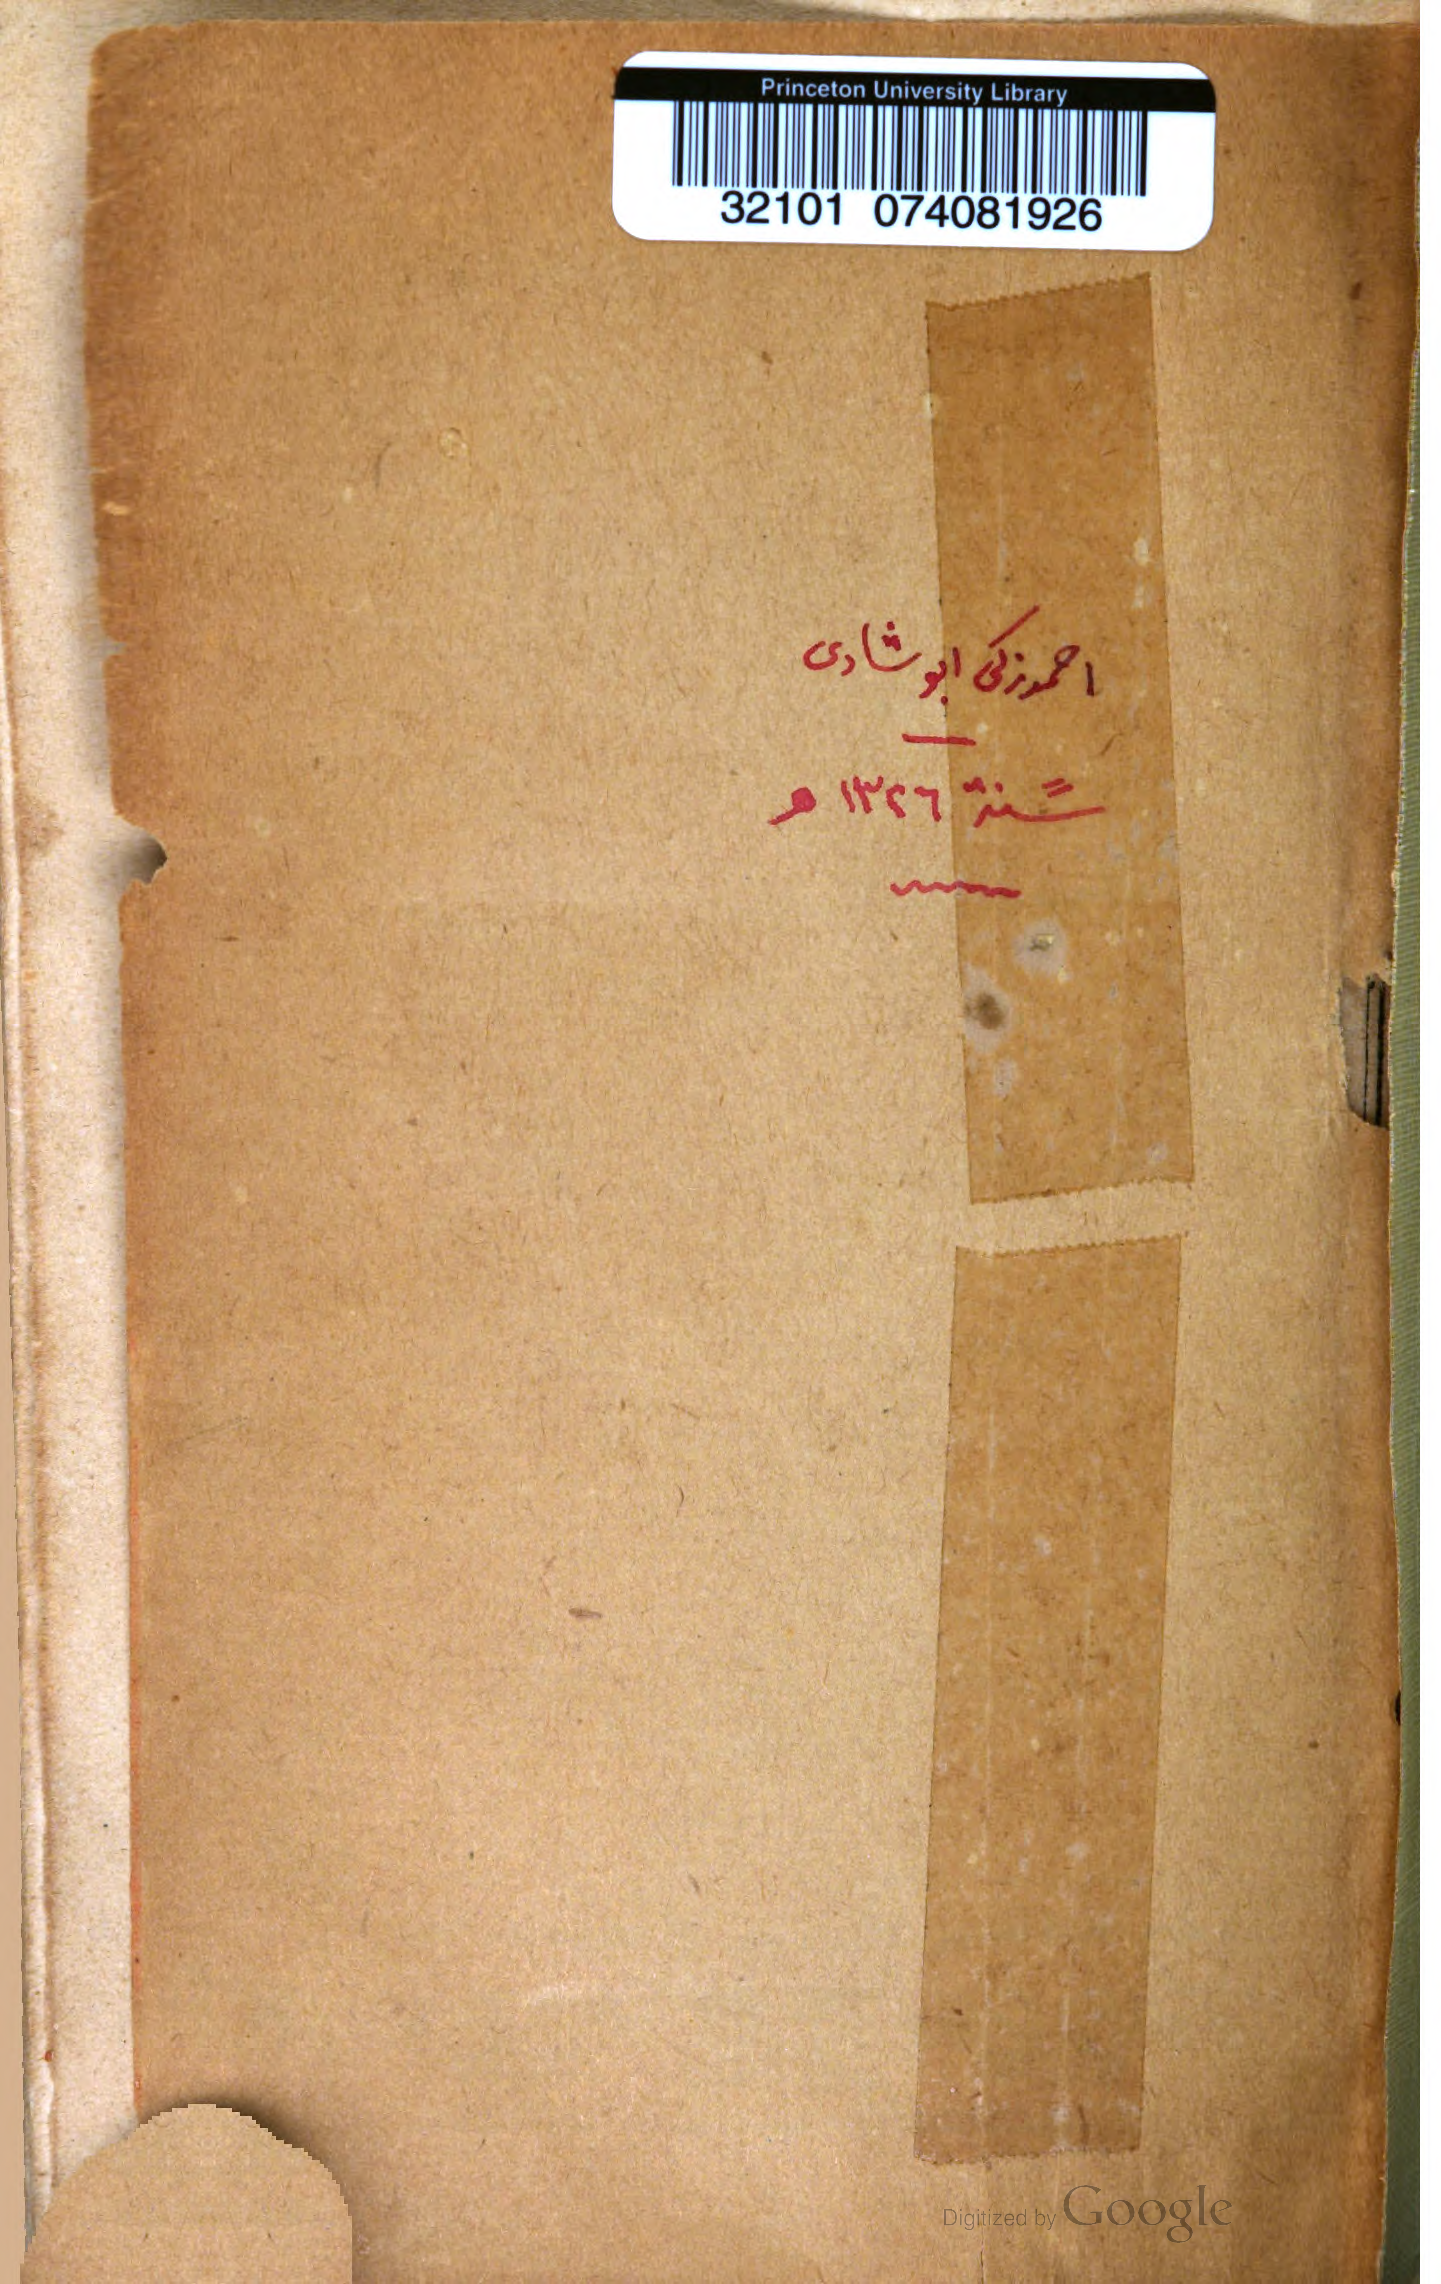 Princeton University Library
32101 074081926
احمد زكى ابو شادى
سنة ١٣٢٦ ه
Digitized by Google